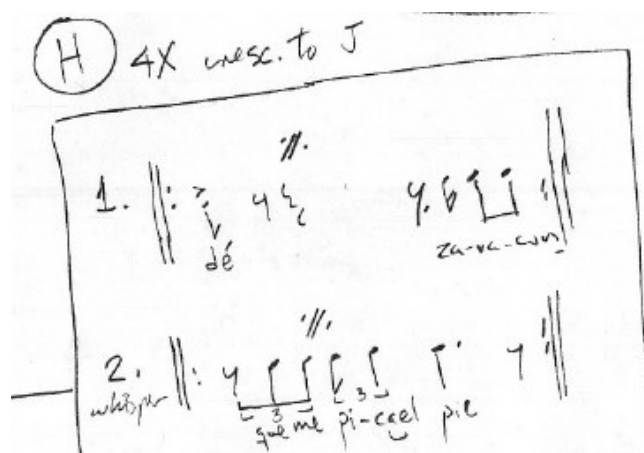 H 4X cresc. to J
1.
dé za-ra-con
2.
whisper 3 3
que me pi-cael pie